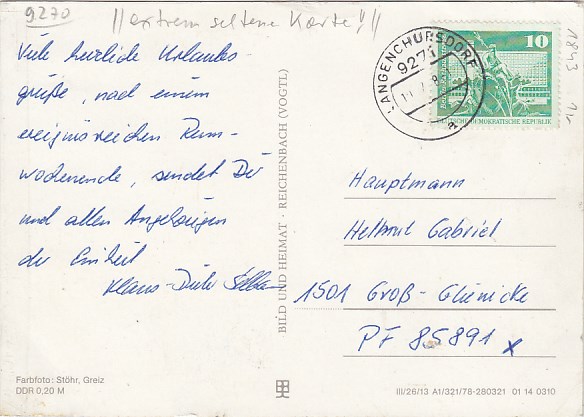 9270 //extrem seltene Karte!//
Viele herzliche Urlaubs-
grüße, nach einem
ereignisreichen Renn-
wochenende, sendet Dir
und allen Angehörigen
der Einheit
Klaus-Dieter
LANGENCHURSDORF
9271
10
DEUTSCHE DEMOKRATISCHE REPUBLIK
1843
BILD UND HEIMAT · REICHENBACH (VOGTL)
Hauptmann
Helmut Gabriel
1501 Groß-Glienicke
PF 85891 x
Farbfoto: Stöhr, Greiz
DDR 0,20 M
III/26/13 A1/321/78-280321 01 14 0310